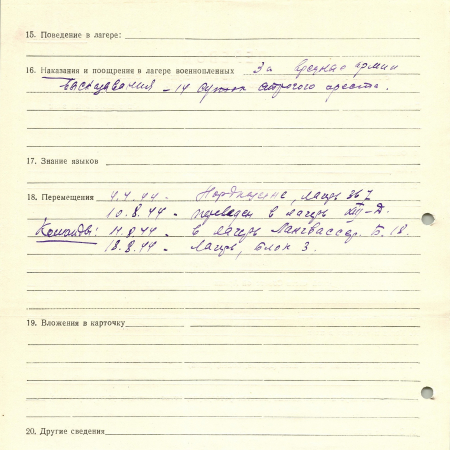 15. Поведение в лагере:
16. Наказания и поощрения в лагере военнопленных За
высказывания – 14 суток строгого ареста.
17. Знание языков
18. Перемещения 4.4.44 – лагерь
10.8.44 – переведен в лагерь XIII-Д.
Команды: 14.8.44 – в лагерь Лангвассер, Б. 18.
18.8.44 – Лагерь, Блок 3.
19. Вложения в карточку
20. Другие сведения